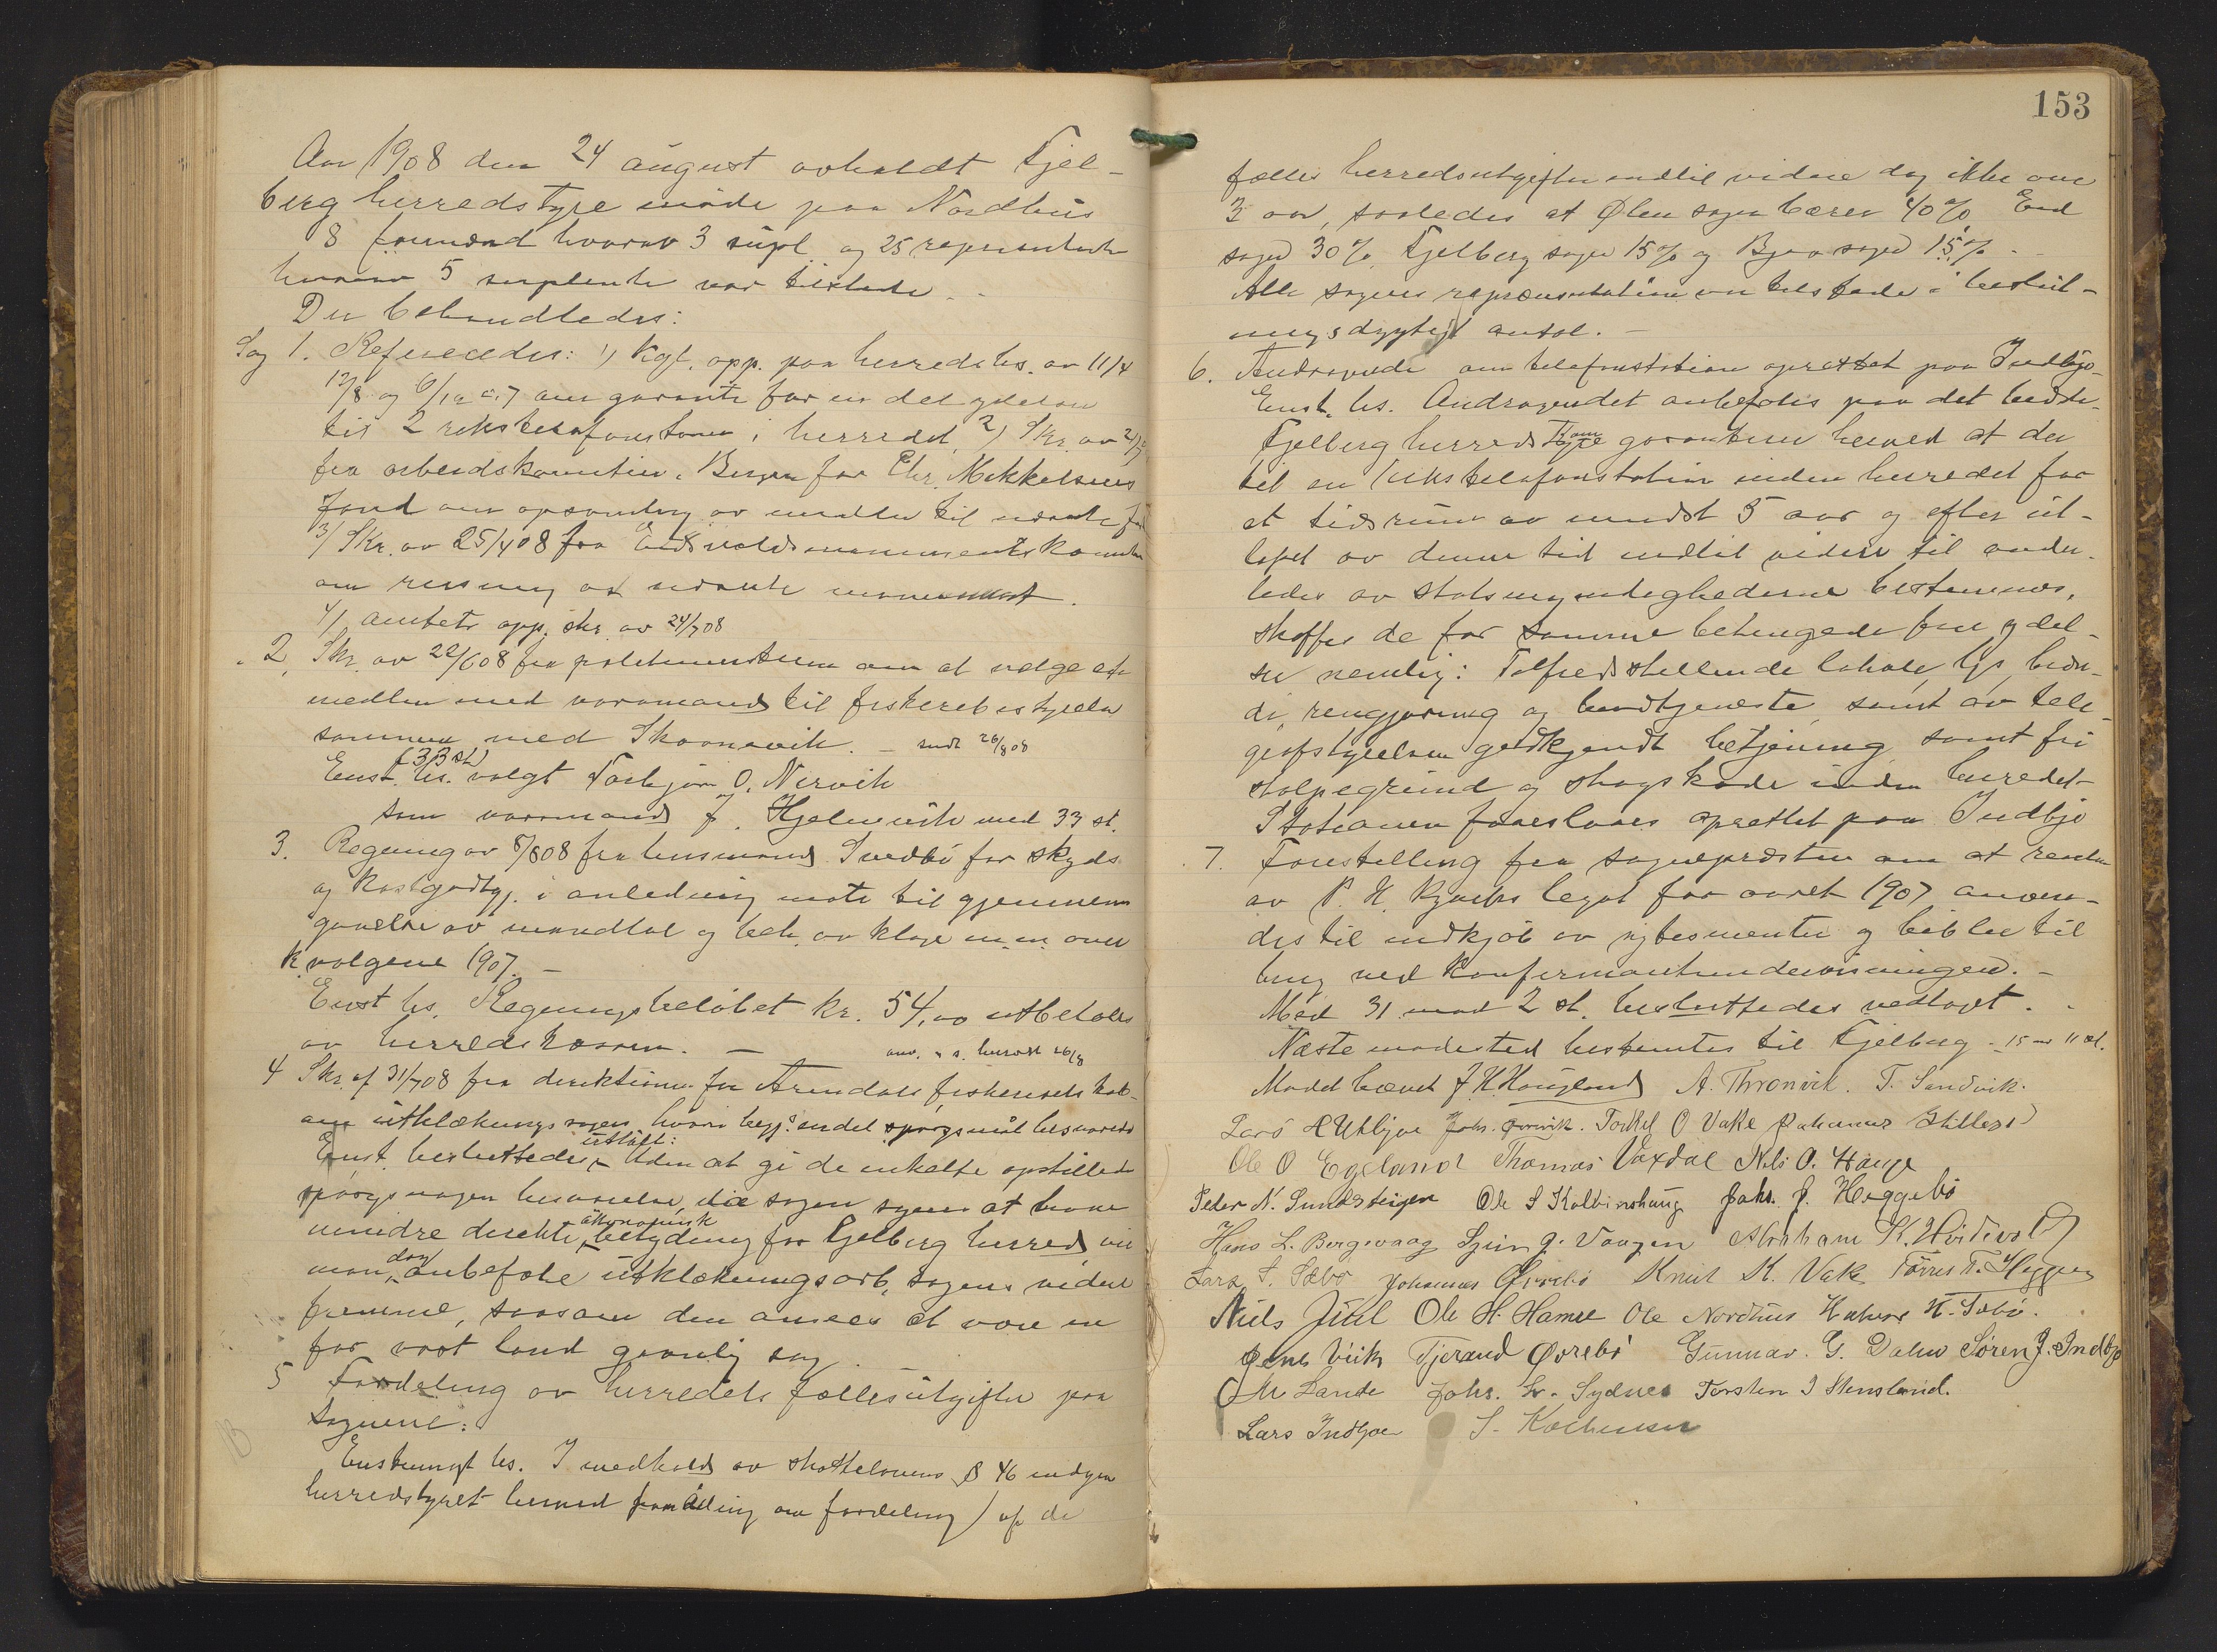 Aar 1908 den 24 august avholdt Fjel-
berg herredstyre møde paa Nordhus
8 formænd hvorav 3 supl. og 25 repræsentanter
hvorav 5 suplenter var tilstede.
Der behandledes:
Sag 1. Refereredes: 1) Kgl. opp. paa herredsbs. av 11/4
12/8 og 6/12 07 om garanti for en del ydelser
til 2 rikstelefonstationer i herredet, 2) Skr. av
fra arbeidskomiteen i Bergen for Chr. Mikkelsens
fond om opsamling av midler til nævnte fond
3/ Skr. av 25/4 08 fra Eidsvoldsmonumentskomiteen
om reisning av nævnte monument.
4/ Amtets opp. skr av 24/7 08
2, Skr. av 22/6 08 fra politimesteren om at vælge et
medlem med varamand til fiskeribestyrelse
sammen med Skaanevik. – sendt 26/8 08
(33 st.)
Enst. bs. valgt Torbjørn O. Nervik
som varamand J. Hjelmvik med 33 st.
3. Regning av 8/8 08 fra lensmand Svedbø for skyds
og kostgodtgj. i anledning møte til gjennem-
gaaelse av manntal og beh. av klage m.m. over
k.valgene 1907. –
Enst bs. Regningsbeløbet kr. 54,00 utbetales
av herredskassen. – anv. 26/8
4 Skr. af 31/7 08 fra direktionen for Arendals fiskeriselskab
om utklækningssagen hvori begj. en del spørgsmål besvaret
Enst. besluttedes uttalt: Uden at gi de enkelte opstillede
spørgsmaal besvarelse, da sagen synes at have
mindre direkte økonomisk betydning for Fjelberg herred, vil
man dog anbefale utklækningsarb. sagens videre
fremme, saasom den ansees at være en
for vort land gavnlig sag. –
5 Fordeling av herredets fællesutgifter paa
sognene:
Enstemmigt bs. I medhold av skattelovens § 46 indgaar
herredstyret herved paa deling om fordeling af de
153
fælles herredsutgifter indtil videre dog ikke over
3 aar, saaledes at Ølen sogn bærer 40% Eid
sogn 30% Fjelberg sogn 15% og Bjoa sogn 15% –
Alle sognes repræsentanter var tilstede i beslut-
ningsdygtigt antal. –
6. Andragende om telefonstation oprettet paa Indbjo-
Enst. bs. Andragendet anbefales paa det bedste.
Fjelberg herreds kom garanterer herved at der
til en rikstelefonstation inden herredet for
et tidsrum av mindst 5 aar og efter ut-
løpet av denne tid indtil videre til ander-
ledes av statsmyndighederne bestemmes,
skaffes de for samme betingede frie ydel-
ser nemlig: Tilfredsstillende lokale, lys, bræn-
de, rengjøring og budtjeneste, samt av tele-
grafstyrelsen godkjendt betjening, samt fri
stolpegrund og skogskade inden herredet
Stationen foreslaaes oprettet paa Indbjo
7. Forestilling fra sognepresten om at renter
av P. H. legat for aaret 1907 anven-
des til indkjøb av nytestamenter og bibler til
brug ved konfirmantundervisningen. –
Med 31 mod 2 st. besluttedes vedtaget. –
Næste mødested bestemtes til Fjelberg.
Mødet hævet J. H. Haugland A. Thronvik. T. Sandvik.
Lars H Utbjoe Johs. Torkel O Vake Johannes
Ole O Egeland Thomas Vaxdal Nils O. Hauge
Peder N. Sundsteigen Ole S Kolbeinshaug Johs. J. Heggebø
Hans L. Bergevaag G. Vaagen Abraham K.
Lars T. Sæbø Johannes Øvrebø Knut K. Vake Tørres T.
Niels Juul Ole H. Hamre Ole Nordhus Halvor H. Sæbø.
Jens Viik Tjerand Øvrebø Gunnar. G. Dalen Søren J. Indbjo
M Lande Johs. Sydnes Torsten I Stensland.
Lars Indbjoe S.